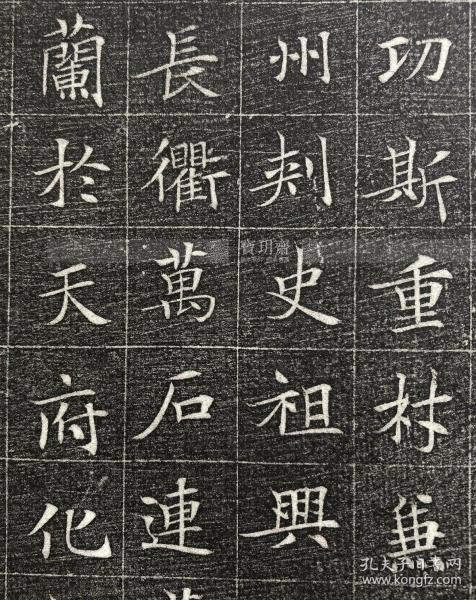 功斯重材
州刺史祖興
長衢萬石連
蘭於天府化
寶玥齋
孔夫子旧书网
www.kongfz.com